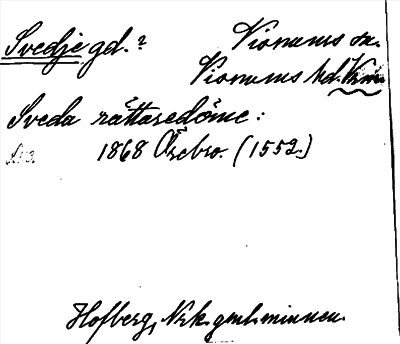 Svedje gd.? Vionums sn.
Vionums hd. Vrm.
Sveda rättaredöme:
1868 Örebro. (1552.)
Hofberg, Nrk. gml. minnen.